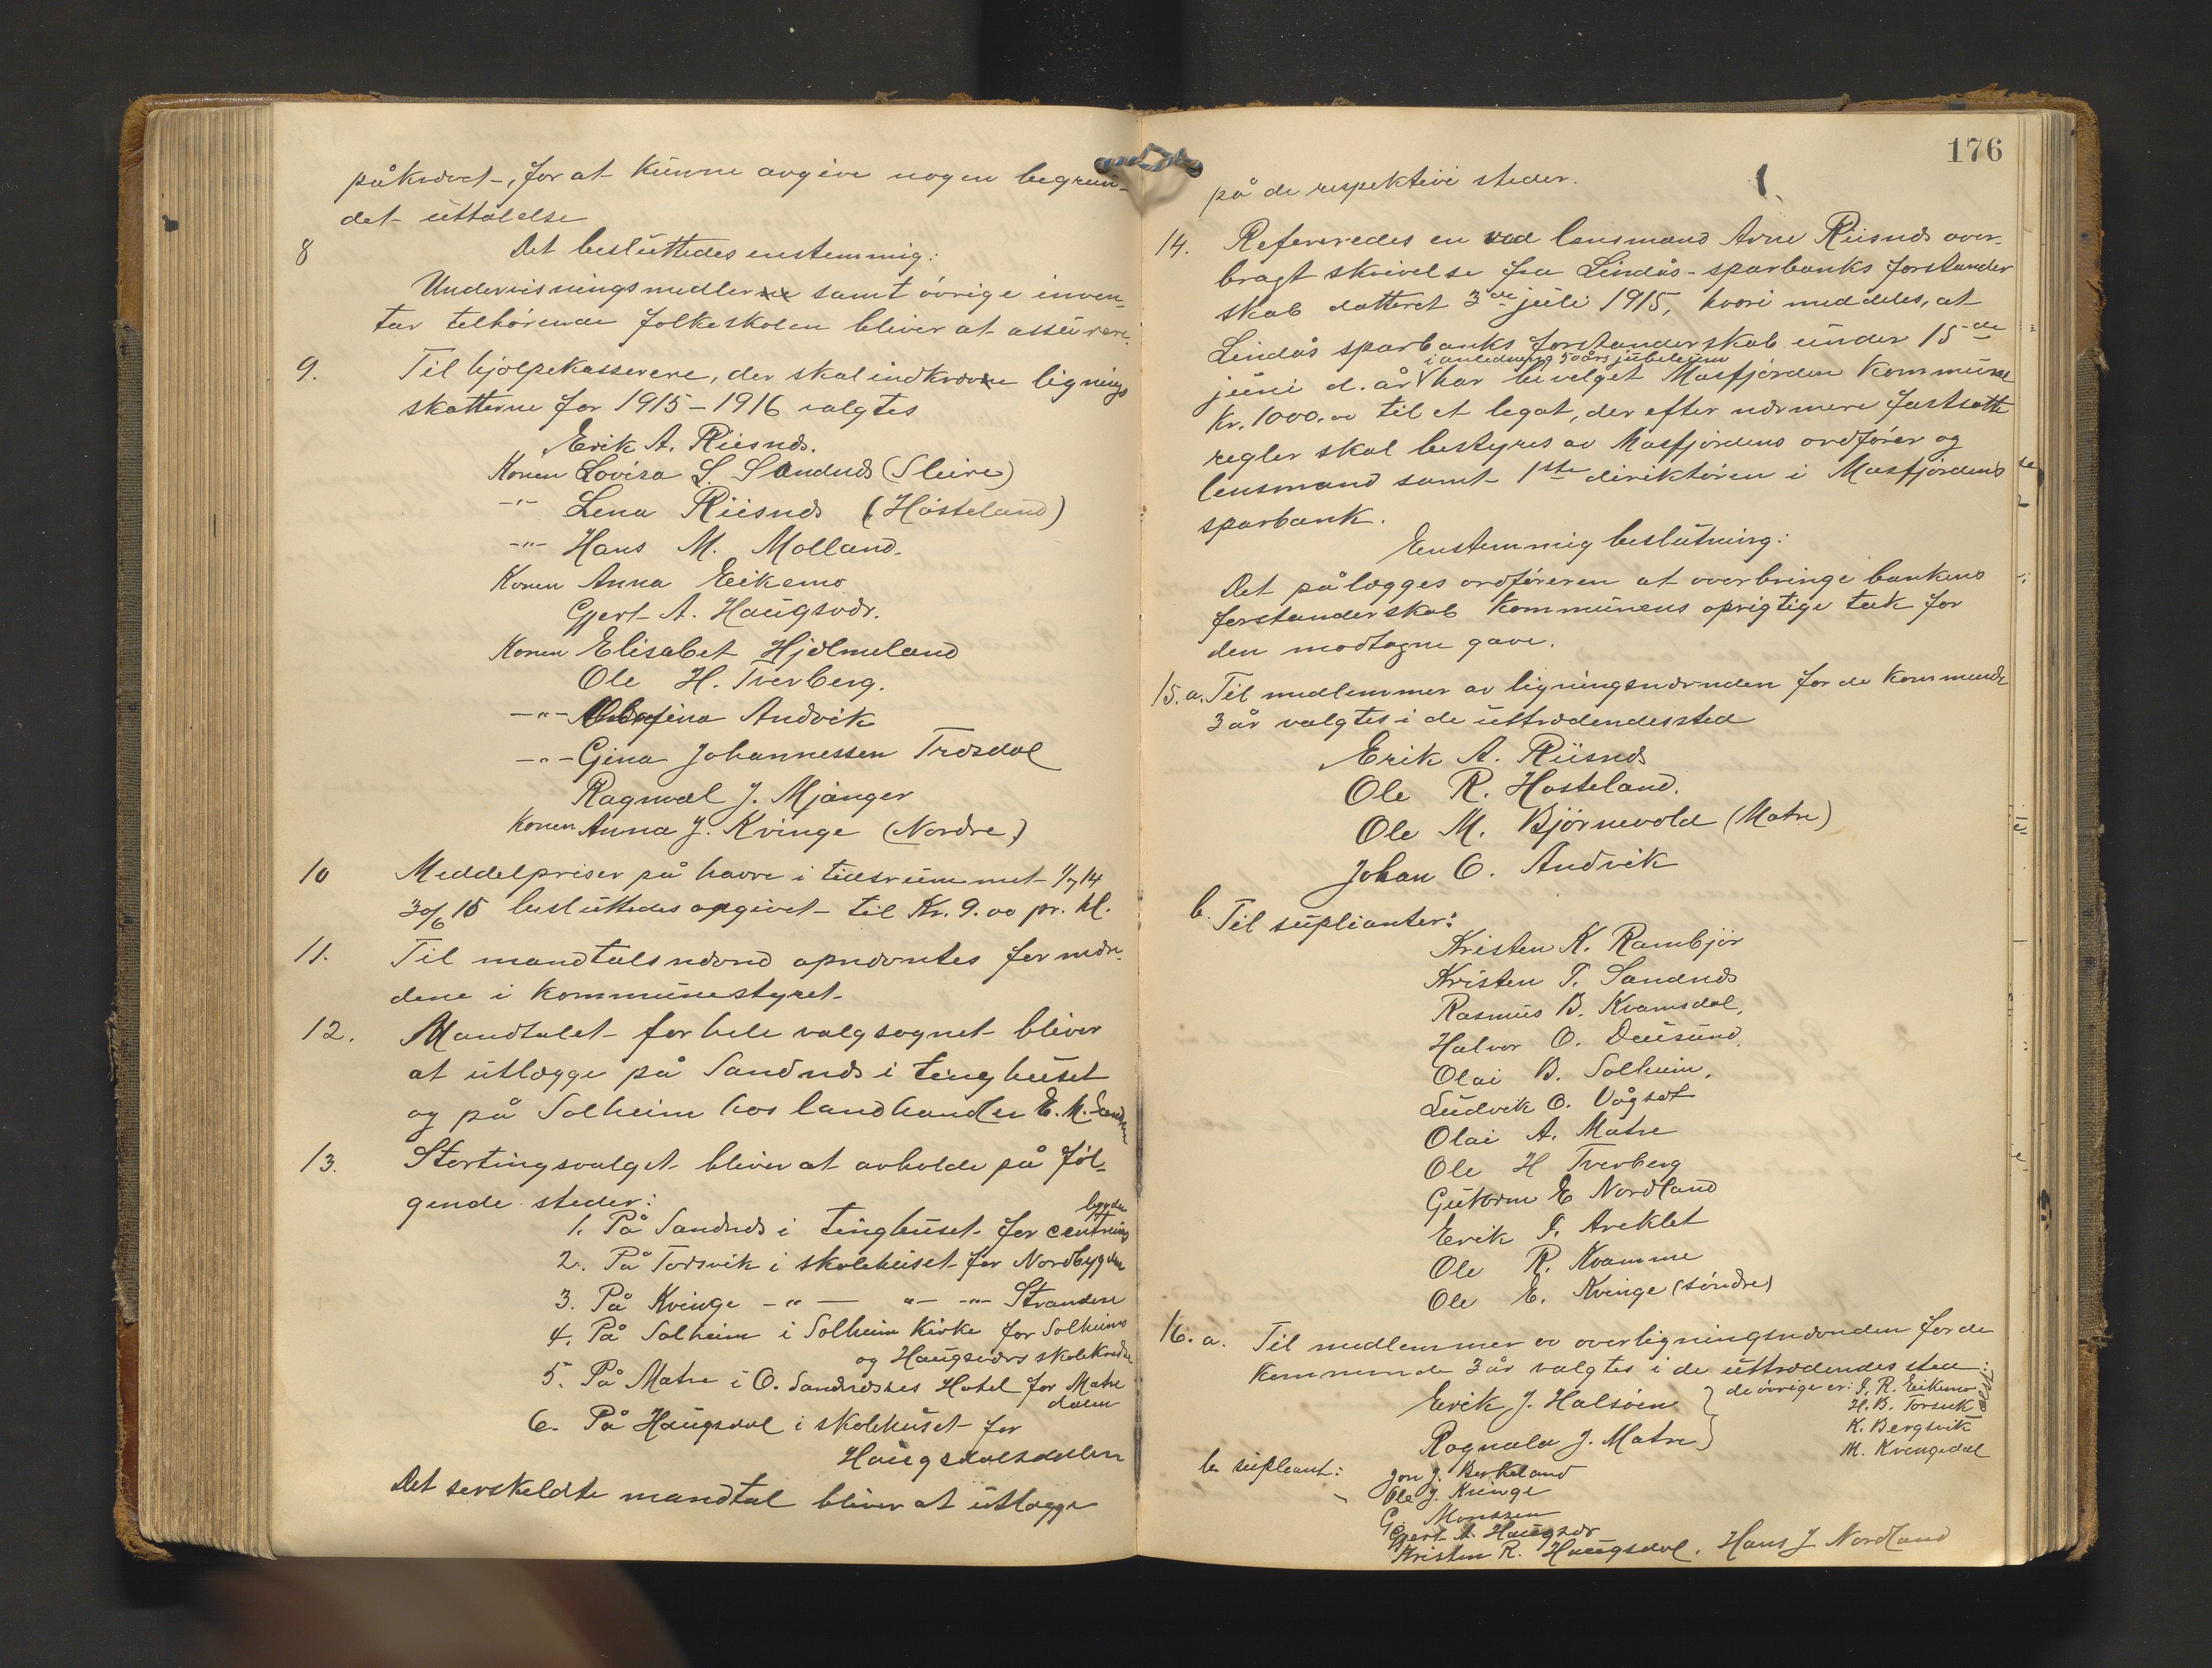 påkrævet, for at kunne avgive nogen begrun-
det uttalelse
8 Det besluttedes enstemmig:
Undervisningsmedlerne samt övrige inven-
tar telhørende folkeskolen bliver at assurere.
9. Til hjælpekasserere, der skal indkræve lignings
skatterne for 1915-1916 valgtes
Erik A. Riisnæs.
Konen Lovisa L. Sandnæs (Sleire)
-"- Lena Riisnæs (Hosteland)
-"- Hans M. Molland.
Konen Anna Eikemo
Gjert A. Haugsvær.
Konen Elisabet Hjelmeland
Ole H. Tverberg.
-"- Andvik
-"- Gina Johannessen Træsdal
Ragnval J. Mjanger
Konen Anna J. Kvinge (Nordre)
10 Meddelpriser på havre i tidsrummet 1/7 14
30/6 15 besluttedes opgivet til Kr. 9.00 pr. hl.
11. Til mandtalsnævnd opnævntes formæn-
dene i kommunestyret.
12. Mandtalet for hele valgsognet bliver
at utlægge på Sandnæs i tinghuset
og på Solheim hos landhandler E. M.
13. Stortingsvalget bliver at avholde på föl-
gende steder:
1. På Sandnæs i tinghuset for centrums
bygden
2. På Torsvik i skolehuset for Nordbygden
3. På Kvinge -"- "- -"- Stranden
4. På Solheim i Solheim Kirke for Solheims
og Haugsværs skolekredse
5. På Matre i O. Sandnæsses Hotel for Matre
dalen
6. På Haugsdal i skolehuset for
Haugsdalsdalen
Det serskeldte mandtal bliver at utlægge
176
på de respektive steder.
14. Refereredes en ved lensmand Arne Riisnæs over-
bragt skrivelse fra Lindås-sparbanks forstander
skab datteret 3de juli 1915, hvori meddeles, at
Lindås sparbanks forstanderskab under 15de
i anledning 50 års jubeleum
juni d. år har bevelget Masfjorden kommune
Kr. 1000.00 til et legat, der efter nærmere fastsatte
regler skal bestyres av Masfjordens ordfører og
lensmand samt 1ste direktøren i Masfjordens
sparbank.
Enstemmig beslutning:
Det pålægges ordføreren at overbringe bankens
forstanderskab kommunens oprigtige tak for
den modtagne gave.
15. a. Til medlemmer av ligningsnævnden for de kommende
3 år valgtes i de uttrædendes sted
Erik A. Riisnæs
Ole R. Hosteland.
Ole M. Bjørnevold (Matre)
Johan O. Andvik
b. Til suplianter:
Kristen K. Rambjør
Kristen T. Sandnæs
Rasmus B. Kvamsdal,
Halvor O. Duesund.
Olai B. Solheim,
Ludvik O. Vågsæt
Olai A. Matre
Ole H Tverberg
Gutorm E Nordland
Erik I. Areklet
Ole R. Kvamme
Ole E. Kvinge (søndre)
16. a. Til medlemmer av overligningsnævnden for de
kommende 3 år valgtes i de uttrædendes sted:
Erik J. Halsøien } de øvrige er: I. R. Eikemo
H. B. Torsvik
Ragnald J. Matre } K. Bergsvik
M. Kvingedal
b. supleant: Jon J. Berkeland
Ole J. Kvinge
G. Monssen
Gjert A. Haugsvær
Kristen R. Haugsdal. Hans J Nordland